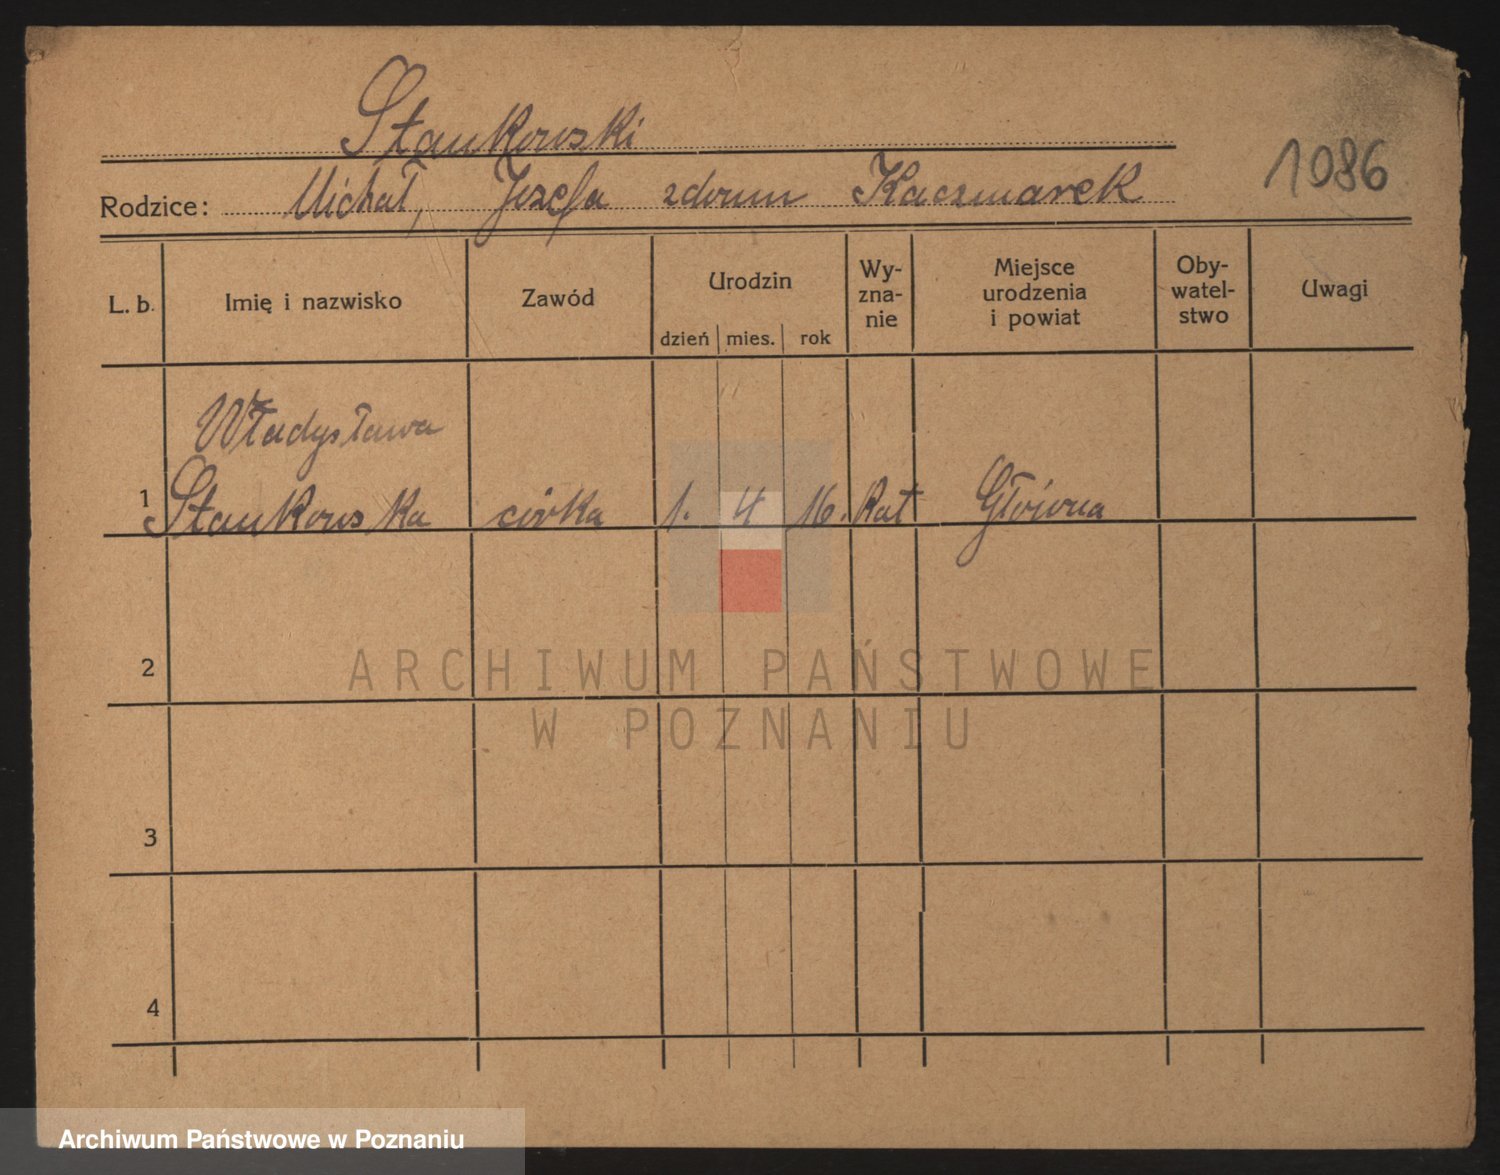 Stankowski
1086
Rodzice: Michał, Jozefa zdomu Kaczmarek
L. b. Imię i nazwisko Zawód Urodzin dzień mies. rok Wy-zna-nie Miejsce urodzenia i powiat Oby-watel-stwo Uwagi
Władysława
1 Stankowska córka 1. 4 16. Kat Główna
2
ARCHIWUM PAŃSTWOWE
W POZNANIU
3
4
Archiwum Państwowe w Poznaniu